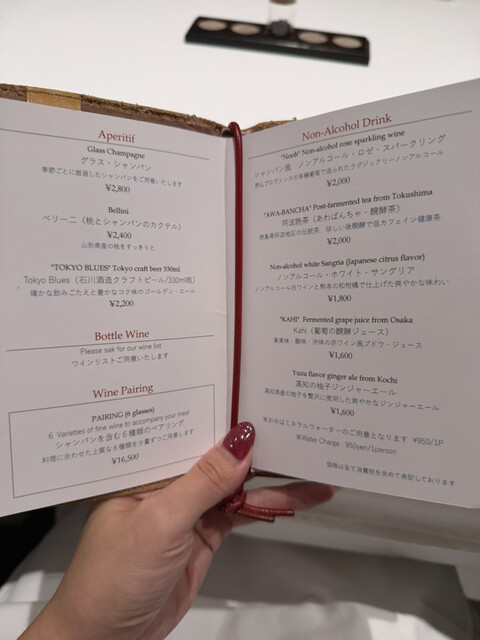 Aperitif
Glass Champagne
グラス・シャンパン
季節ごとに厳選したシャンパンをご用意いたします
¥2,800
Bellini
ベリーニ（桃とシャンパンのカクテル）
¥2,400
山形県産の桃をすっきりと
"TOKYO BLUES" Tokyo craft beer 330ml
Tokyo Blues（石川酒造クラフトビール/330ml瓶）
確かな飲みごたえと豊かなコク味のゴールデン・エール
¥2,200
Bottle Wine
Please sak for our wine list
ワインリストご用意いたします
Wine Pairing
PAIRING (6 glasses)
6 Varieties of fine wine to accompany your meal
シャンパンを含む６種類のペアリング
料理に合わせた上質な６種類を少量ずつご用意します
¥16,500
Non-Alcohol Drink
"Nooh" Non-alcohol rose sparkling wine
シャンパン風 ノンアルコール・ロゼ・スパークリング
南仏プロヴァンスの有機葡萄で造られたラグジュアリーノンアルコール
¥2,000
"AWA-BANCHA" Post-farmented tea from Tokushima
阿波晩茶（あわばんちゃ・醗酵茶）
徳島県阿波地区の伝統茶 珍しい後醗酵で低カフェイン健康茶
¥2,000
Non-alcohol white Sangria (Japanese citrus flavor)
ノンアルコール・ホワイト・サングリア
ノンアルコール白ワインと熊本の和柑橘で仕上げた爽やかな味わい
¥1,800
"KAHI" Fermented grape juice from Osaka
Kahi（葡萄の醗酵ジュース）
果実味・酸味・渋味の赤ワイン風ブドウ・ジュース
¥1,600
Yuzu flavor ginger ale from Kochi
高知の柚子ジンジャーエール
高知県産の柚子を贅沢に使用した爽やかなジンジャーエール
¥1,600
※お水はミネラルウォーターのご用意となります ¥950/1P
※Water Charge 950yen/1person
価格は全て消費税を含めて表記しております